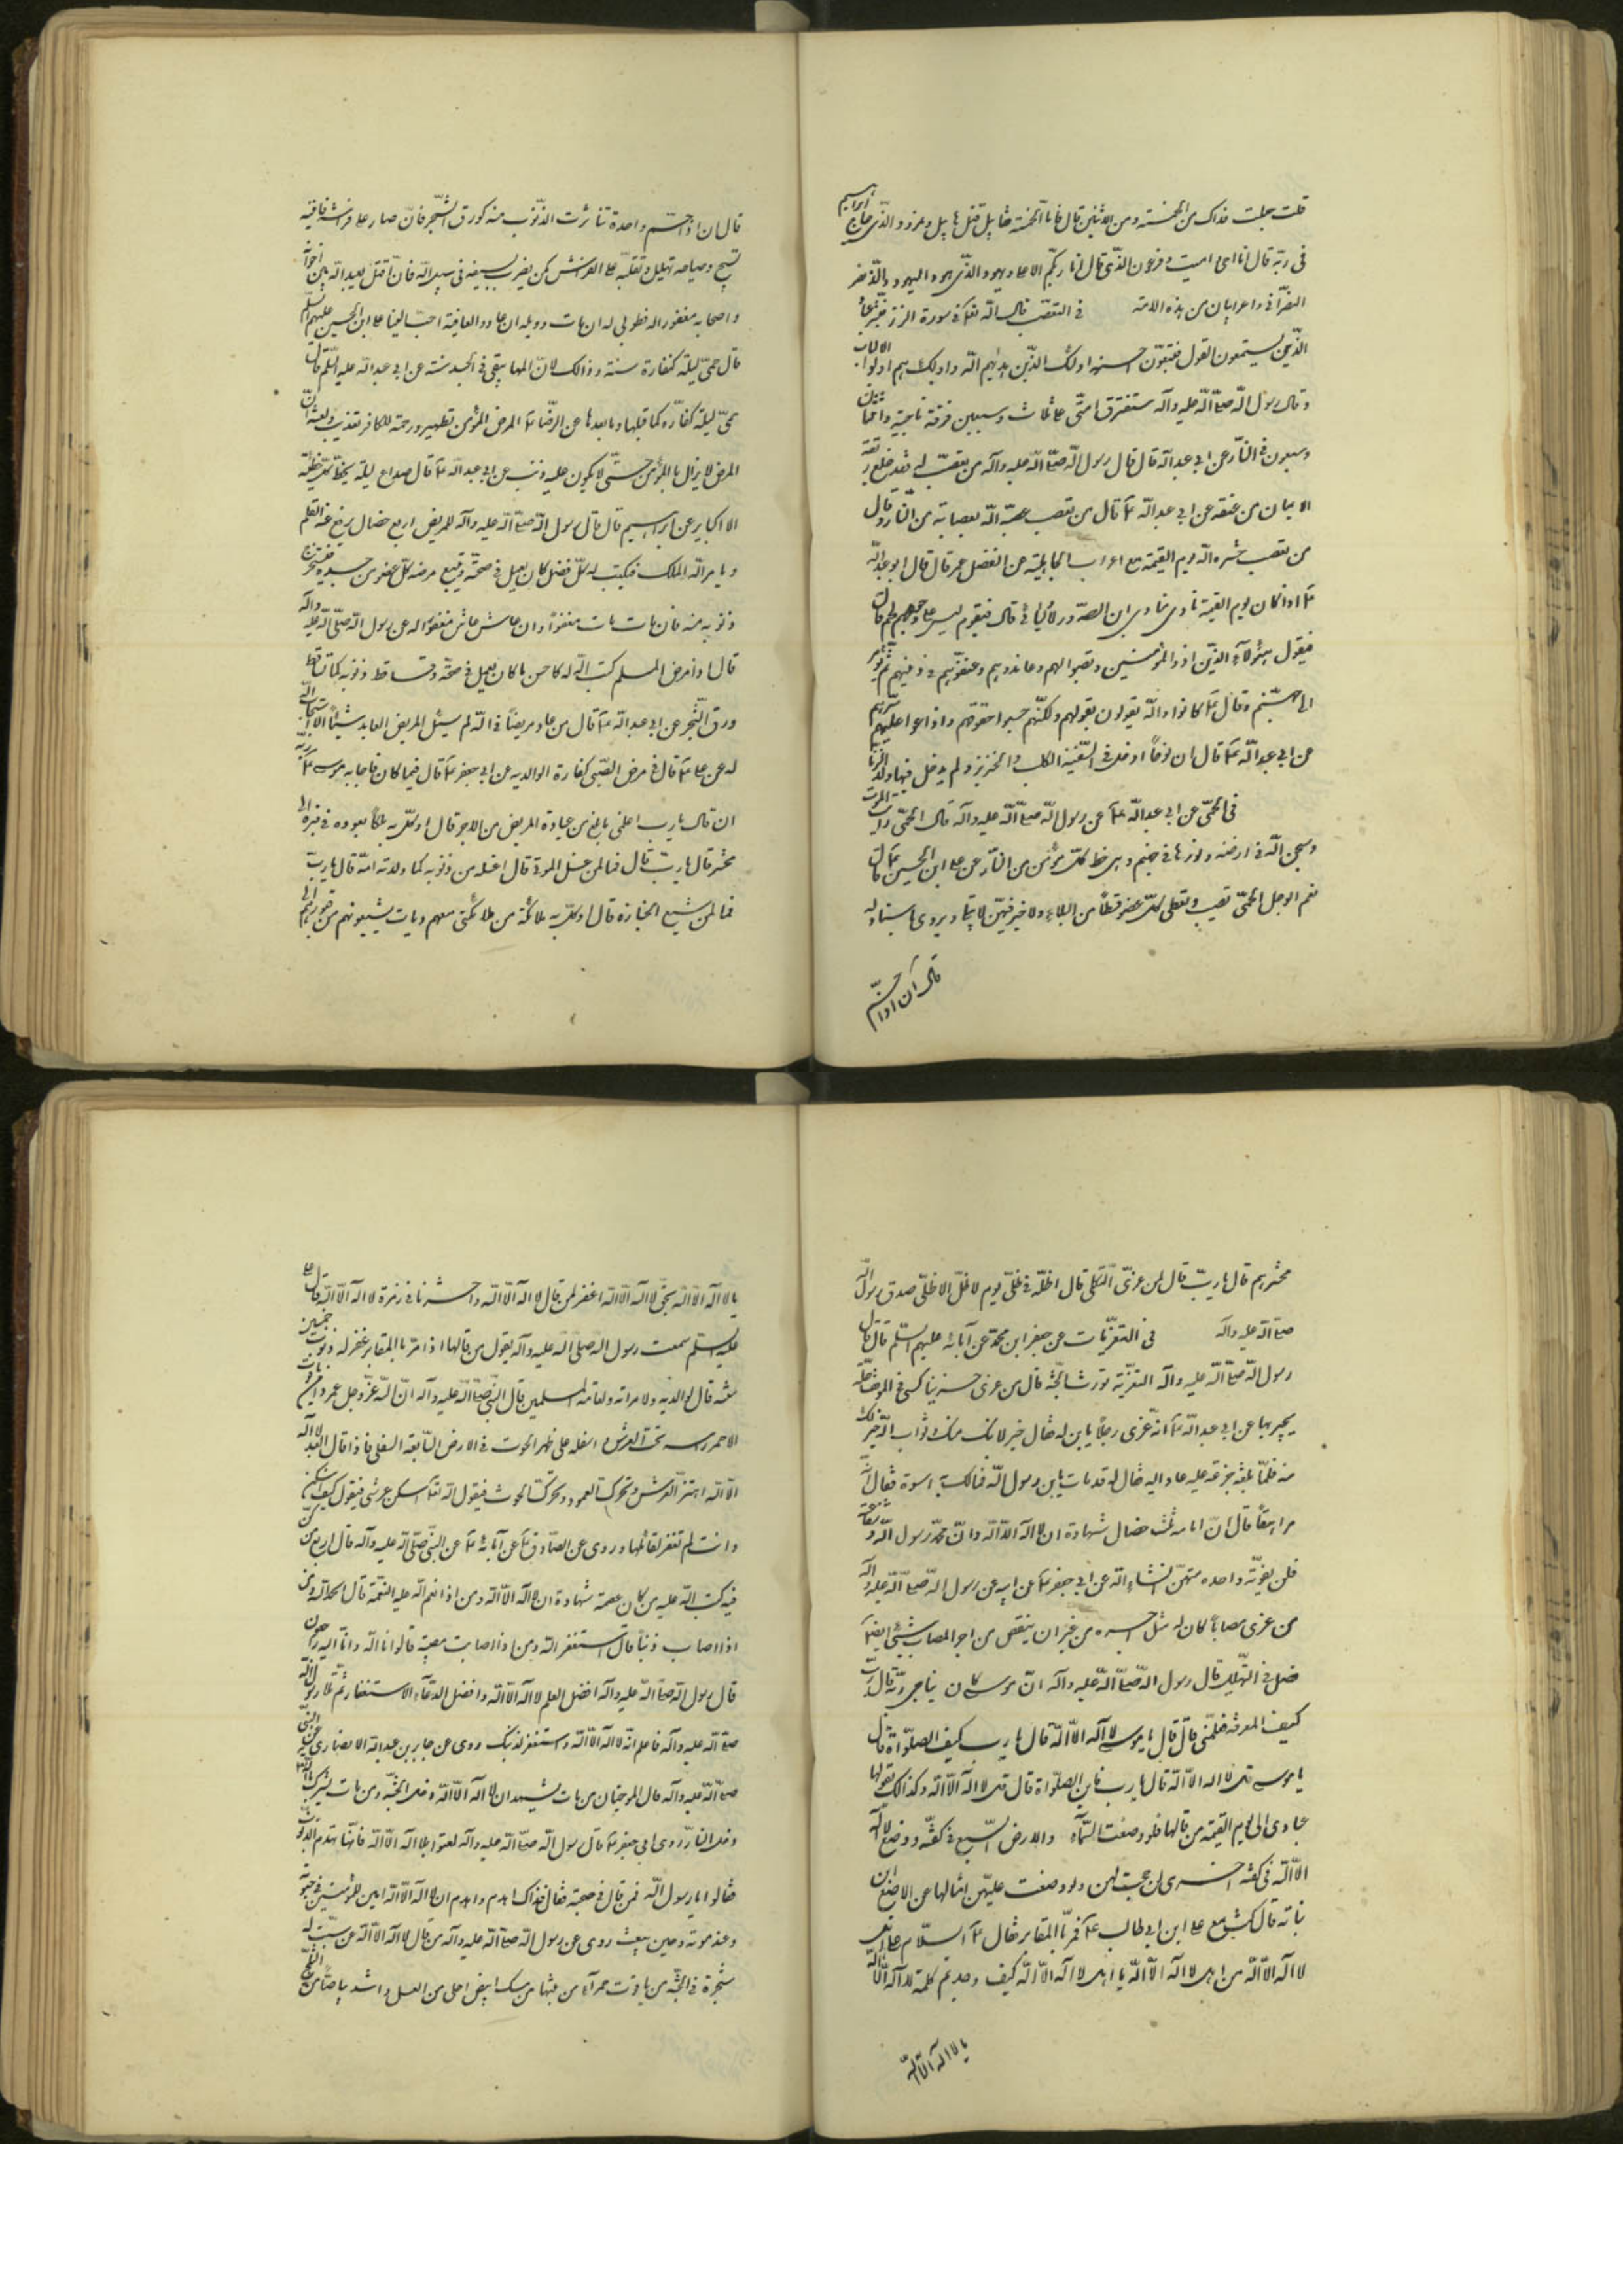 قلت جعلت فداك من الخمسة ومن الاثنين قال فاما الخمسة فقابيل قتل هابيل ونمرود الذي حاج ابراهيم
في ربه قال انا احي واميت وفرعون الذي قال انا ربكم الاعلى ويهود الذي هود اليهود والذي نصر
النصارى واعرابيان من هذه الامة في التعصب قال الله تعالى في سورة الزمر فبشر عباد
الذين يستمعون القول فيتبعون احسنه اولئك الذين هديهم الله واولئك هم اولوا الالباب
وقال رسول الله صلى الله عليه وآله ستفترق امتي على ثلاث وسبعين فرقة ناجية واثنتان
وسبعون في النار عن ابي عبد الله قال قال رسول الله صلى الله عليه وآله من تعصب له فقد خلع ربقة
الايمان من عنقه عن ابي عبد الله ع قال من تعصب عصبه الله بعصابة من النار وقال
من تعصب حشره الله يوم القيمة مع اعراب الجاهلية عن المفضل عمر قال قال ابو عبد الله
ع اذا كان يوم القيمة نادى مناد اين الصدود لاوليائي قال فيقوم ليس على وجوههم لحم قال
فيقول هؤلاء الذين اذوا المؤمنين ونصبوا لهم وعاندوهم وعنفوهم في دينهم ثم يؤمر
الى جهنم وقال ع كانوا والله يقولون بقولهم ولكنهم حبسوا حقوقهم واذاعوا عليهم سرهم
عن ابي عبد الله ع قال ان نوحا ادخل في السفينة الكلب والخنزير ولم يدخل فيها ولد الزنا
في الحمى عن ابي عبد الله ع عن رسول الله صلى الله عليه وآله قال الحمى رايد الموت
وسجن الله في ارضه وفورها في جهنم وهي حظ كل مؤمن من النار عن علي ابن الحسين ع قال
نعم الوجل الحمى تصيب وتعطى لكل عضو قسطا من البلاء ولا خير فيمن لا يبتلى ويروى باسناده
قال ان اذا حم
قال ان اذا حم واحدة تناثرت الذنوب منه كورق الشجر فان صار على فراشه فانينه
تسبيح وصياحه تهليل وتقلبه على الفراش كمن يضرب بسيفه في سبيل الله فان اقبل يعبد الله بين اخوانه
واصحابه مغفورا له فطوبى له ان مات وويله ان عاد والعافية احب الينا علي ابن الحسين عليهم السلم
قال حمى ليلة كفارة سنة وذلك لان المها يبقى في الجسد سنة عن ابي عبد الله عليه السلم قال
حمى ليلة كفارة لما قبلها وما بعدها عن الرضا ع المرض للمؤمن تطهير ورحمة للكافر تعذيب ولعنة وان
المرض لا يزال بالمؤمن حتى لا يكون عليه ذنب عن ابي عبد الله ع قال صداع ليلة يحط كل خطيئة
الا الكباير عن ابراهيم قال قال رسول الله صلى الله عليه وآله للمريض اربع خصال يرفع عنه القلم
ويامر الله الملك فيكتب له كل فضل كان يعمل في صحته ويتبع مرضه كل عضو من جسده فيستخرج
ذنوبه منه فان مات مات مغفورا وان عاش عاش مغفورا له عن رسول الله صلى الله عليه وآله
قال اذا مرض المسلم كتب الله له كاحسن ما كان يعمل في صحته وتساقط ذنوبه كما تساقط
ورق الشجر عن ابي عبد الله ع قال من عاد مريضا في الله لم يسئل المريض العايد شيئا الا استجاب الله
له عن علي ع قال في مرض الصبي كفارة لوالديه عن ابي جعفر ع قال فيما كان ناجا به موسى ع ربه
ان قال يا رب اعلمني ما بلغ من عيادة المريض من الاجر قال اوكل به ملكا يعوده في قبره الى
محشره قال يا رب قال فما لمن غسل الموتى قال اغسله من ذنوبه كما ولدته امه قال يا رب
فما لمن شيع الجنازة قال اوكل به ملائكة من ملائكتي معهم رايات يشيعونهم من قبورهم الى
محشرهم قال يا رب قال لمن عزى الثكلى قال اظله في ظلي يوم لا ظل الا ظلي صدق رسول الله
صلى الله عليه وآله في التعزيات عن جعفر ابن محمد عن آبائه عليهم السلم قال قال
رسول الله صلى الله عليه وآله التعزية تورث الجنة قال من عزى حزينا كسى في الموقف حلة
يحبر بها عن ابي عبد الله ع انه عزى رجلا بابن له فقال خير لابنك منك وثواب الله خير لك
منه فلما بلغه جزعه عليه عاد اليه فقال له قد مات يابن رسول الله فمالك به اسوة فقال انه
مراهقا قال ان امامه ثلث خصال شهادة ان لا اله الا الله وان محمد رسول الله وشفاعته
فلن يفوته واحده منهن انشاء الله عن ابي جعفر ع عن ابيه عن رسول الله صلى الله عليه وآله
من عزى مصابا كان له مثل اجره من غير ان ينقص من اجر المصاب شيئى ايضا
فصل في التهليل قال رسول الله صلى الله عليه وآله ان موسى كان يناجي ربه قال رب
كيف المعرفة فعلمني قال قال يا موسى لا اله الا الله قال يا رب كيف الصلواة قال
يا موسى قل لا اله الا الله قال يا رب فاين الصلواة قال قل لا اله الا الله وكذلك تقولها
عبادي الى يوم القيمة من قالها فلو وضعت السماء والارض السبع في كفة ووضع لا اله
الا الله في كفة اخرى لرجحت بهن ولو وضعت عليهن امثالها عن الاصبغ ابن
نباته قال كنت مع علي ابن ابي طالب ع فمر بالمقابر فقال ع السلام على اهل
لا اله الا الله من اهل لا اله الا الله يا اهل لا اله الا الله كيف وجدتم كلمة لا اله الا الله
يا لا اله الا الله
يا لا اله الا الله بحق لا اله الا الله اغفر لمن قال لا اله الا الله واحشرنا في زمرة لا اله الا الله قال علي
عليه السلم سمعت رسول الله صلى الله عليه وآله يقول من قالها اذا مر بالمقابر غفر له ذنوب خمسين
سنه قال لوالديه ولامراته ولعامة المسلمين قال النبي صلى الله عليه وآله ان لله عز وجل عمودا من ياقوت
الاحمر راسه تحت العرش واسفله على ظهر الحوت في الارض السابعة السفلى فاذا قال العبد لا اله
الا الله اهتز العرش وتحرك العمود وتحرك الحوت فيقول الله تعالى اسكن عرشي فيقول كيف اسكن
وانت لم تغفر لقائلها وروى عن الصادق ع عن آبائه ع عن النبي صلى الله عليه وآله قال اربع من كن
فيه كتب الله عليه من كان عصمة شهادة ان لا اله الا الله ومن اذا انعم الله عليه النعمة قال الحمد لله ومن
اذا اصاب ذنبا قال استغفر الله ومن اذا اصابت مصيبة قالوا انا لله وانا اليه راجعون
قال رسول الله صلى الله عليه وآله افضل العلم لا اله الا الله وافضل الدعاء الاستغفار ثم تلا رسول الله
صلى الله عليه وآله فاعلم انه لا اله الا الله واستغفر لذنبك روى عن جابر بن عبد الله الانصاري عن النبي
صلى الله عليه وآله قال الموجبتان من مات يشهد ان لا اله الا الله دخل الجنة ومن مات يشرك بالله
دخل النار روى ابي جعفر ع قال رسول الله صلى الله عليه وآله لقنوا بلا اله الا الله فانها تهدم الذنوب
فقالوا يا رسول الله فمن قال في صحته فقال فذاك اهدم واهدم ان لا اله الا الله انس للمؤمنين في حيوته
وعند موته وحين يبعث روى عن رسول الله صلى الله عليه وآله من قال لا اله الا الله غرست له
شجرة في الجنة من ياقوت حمراء من نبتها من مسك ابيض احلى من العسل واشد بياضا من الثلج